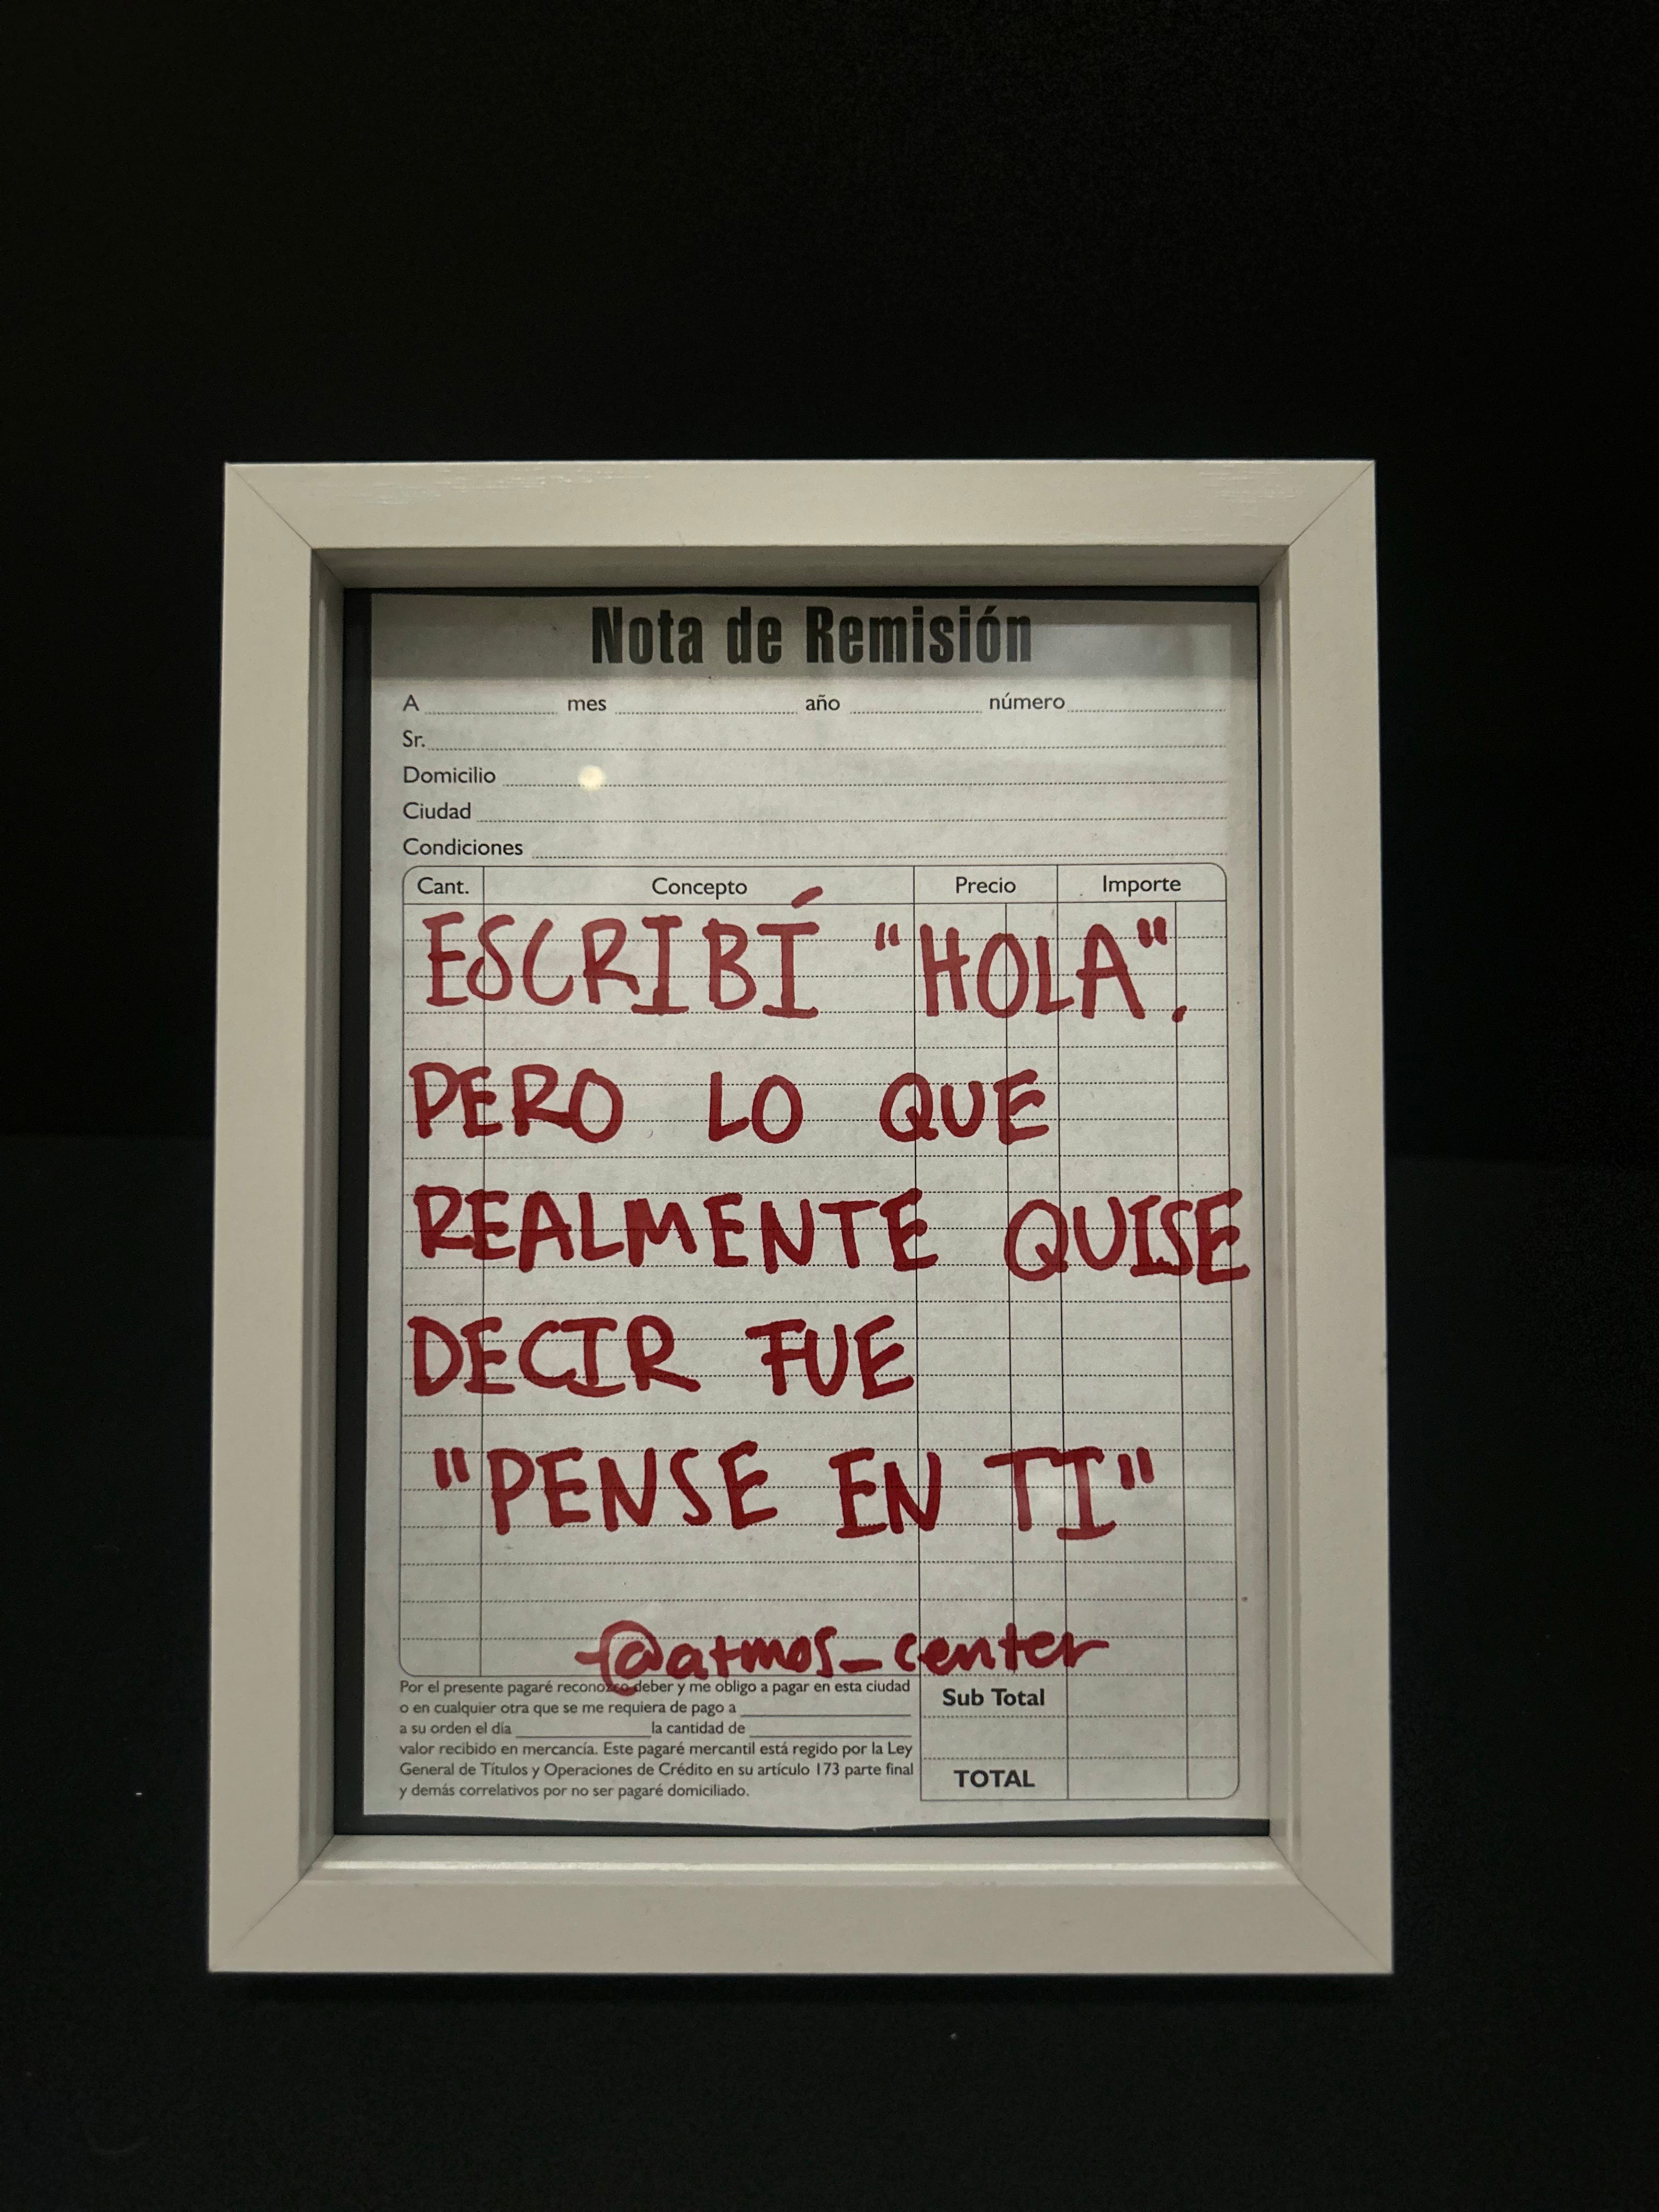 Nota de Remisión
A mes año número
Sr.
Domicilio
Ciudad
Condiciones
Cant. Concepto Precio Importe
ESCRIBÍ "HOLA".
PERO LO QUE
REALMENTE QUISE
DECIR FUE
"PENSE EN TI"
@atmos_center
Por el presente pagaré reconozco deber y me obligo a pagar en esta ciudad
o en cualquier otra que se me requiera de pago a
a su orden el día la cantidad de
valor recibido en mercancía. Este pagaré mercantil está regido por la Ley
General de Títulos y Operaciones de Crédito en su artículo 173 parte final
y demás correlativos por no ser pagaré domiciliado.
Sub Total
TOTAL